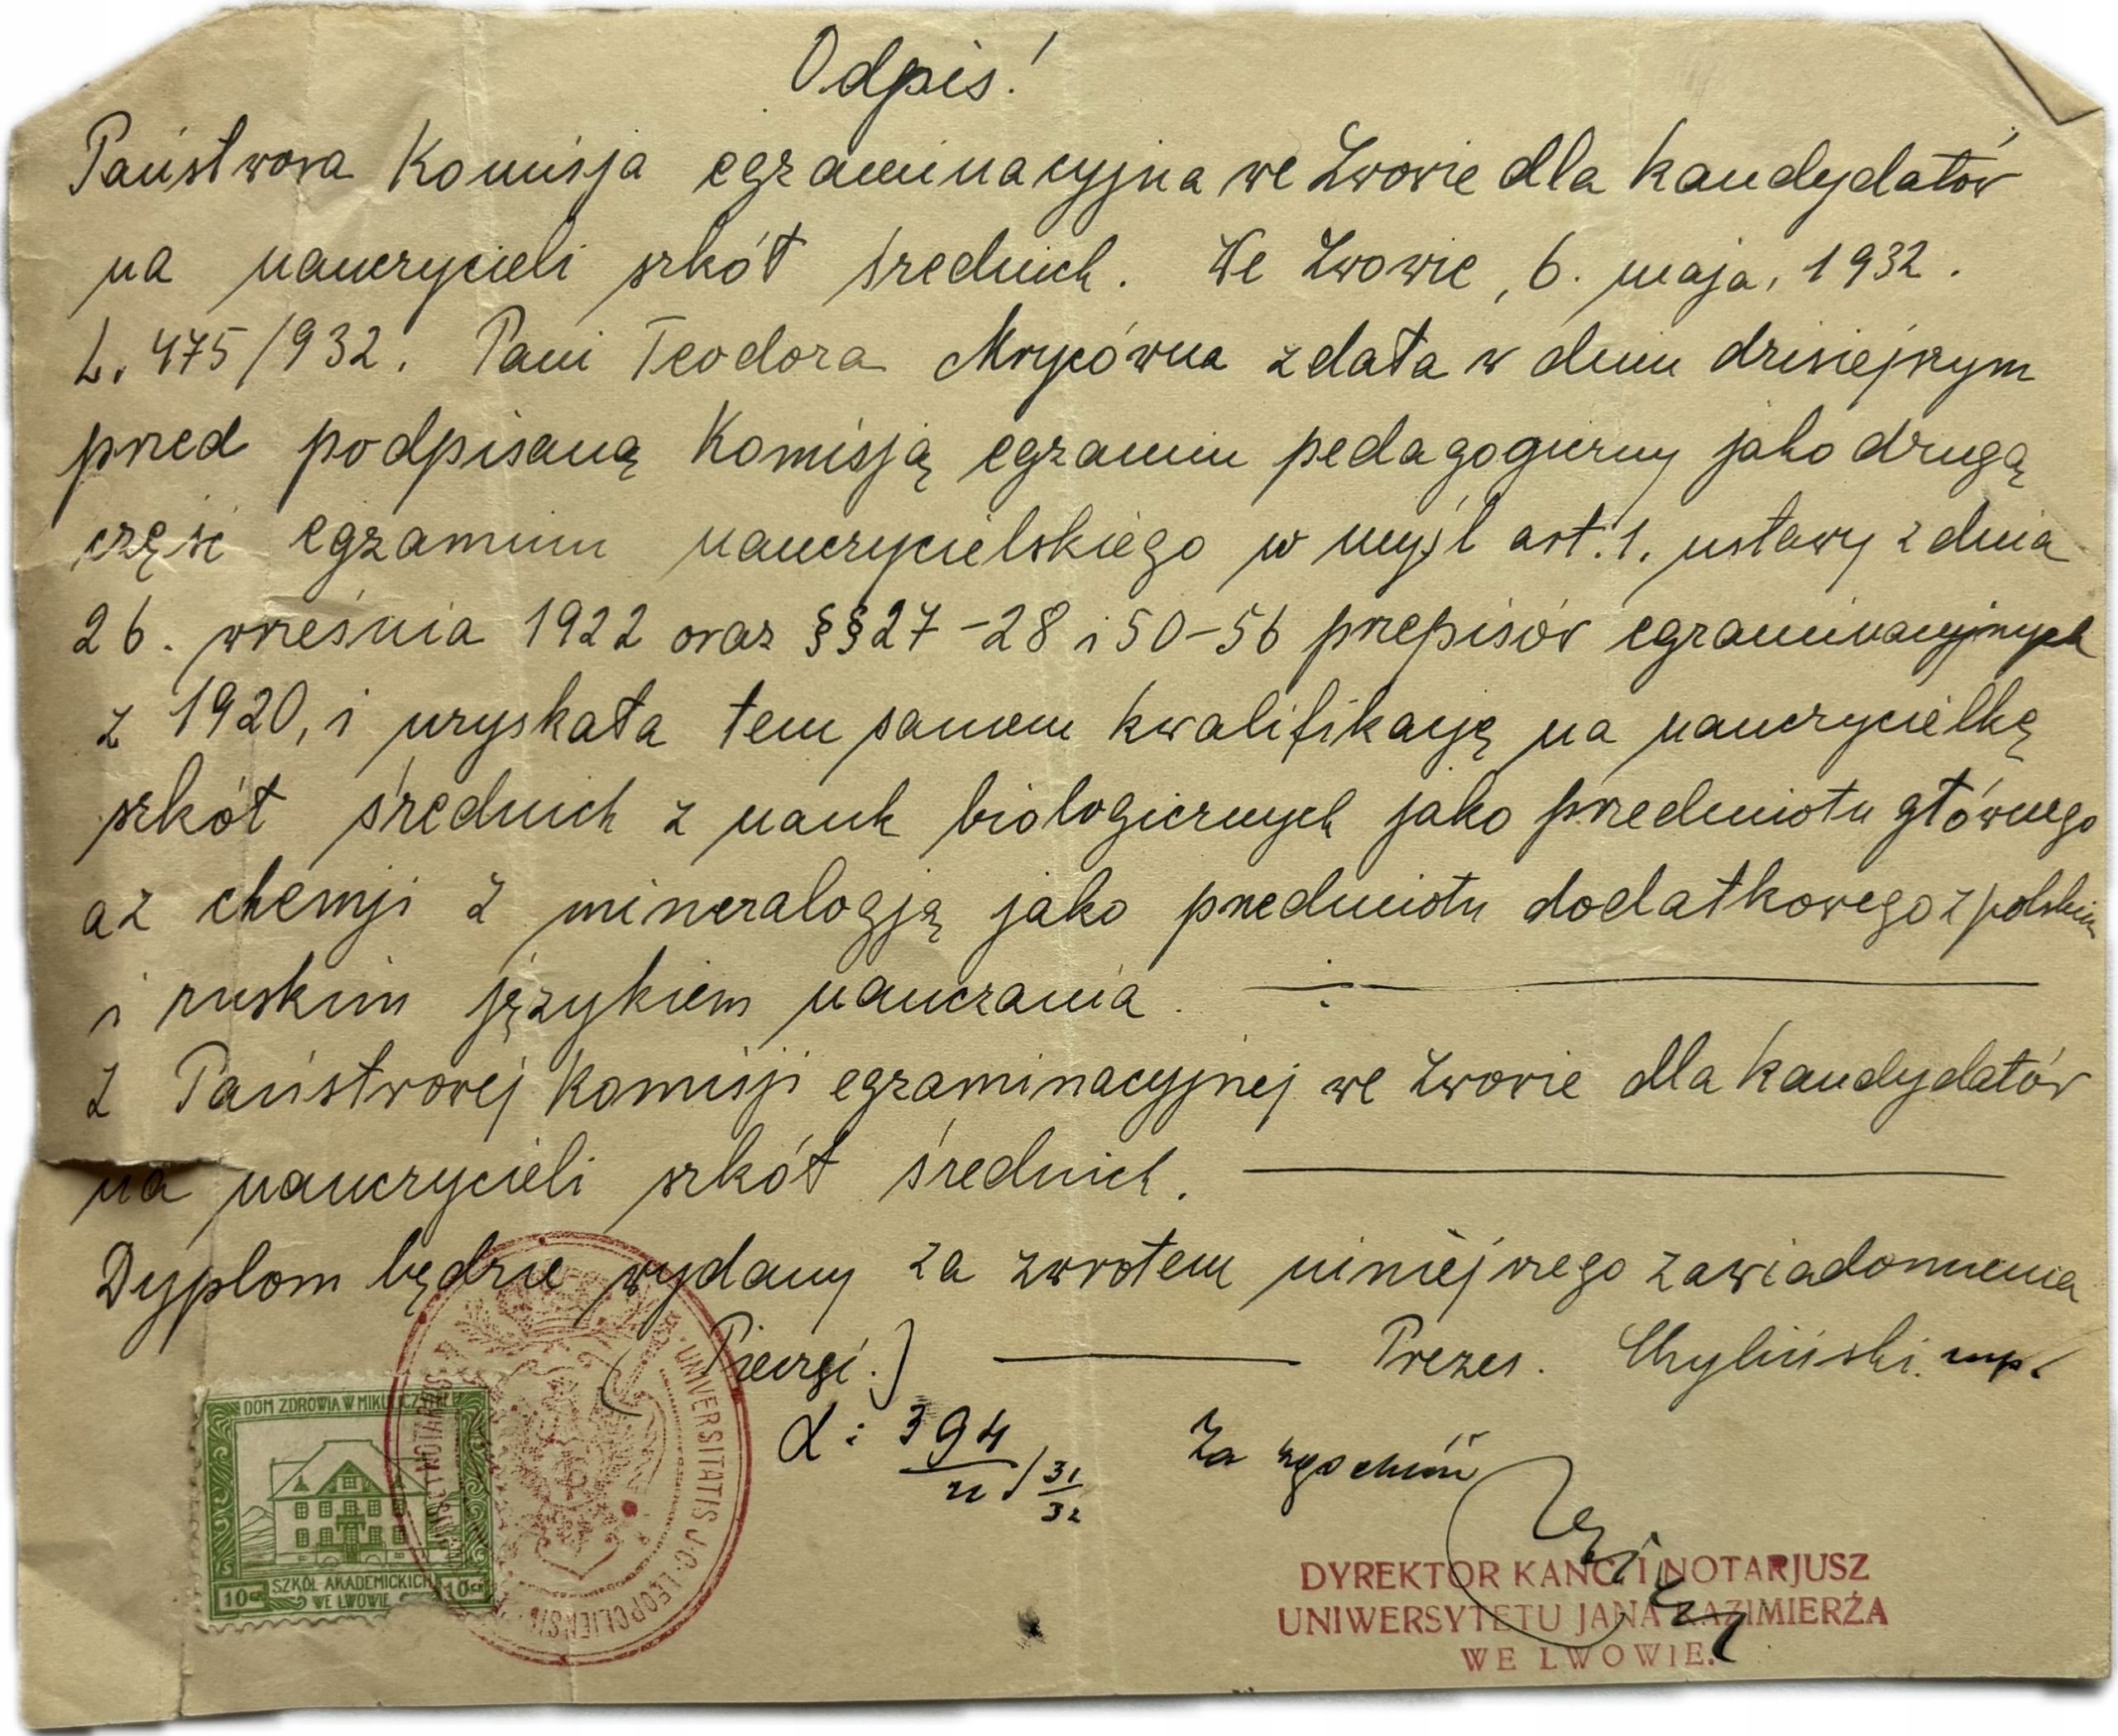 Odpis!
Państwowa Komisja egzaminacyjna we Lwowie dla kandydatów
na nauczycieli szkół średnich. We Lwowie, 6. maja, 1932.
L. 475/932. Pani Teodora Mrycówna zdała w dniu dzisiejszym
przed podpisaną Komisją egzamin pedagogiczny jako drugą
część egzaminu nauczycielskiego w myśl art. 1. ustawy z dnia
26. września 1922 oraz §§ 27-28 i 50-56 przepisów egzaminacyjnych
z 1920, i uzyskała tem samem kwalifikację na nauczycielkę
szkół średnich z nauk biologicznych jako przedmiotu głównego
a z chemji z mineralogją jako przedmiotu dodatkowego z polskim
i ruskim językiem nauczania.
Z Państwowej Komisji egzaminacyjnej we Lwowie dla kandydatów
na nauczycieli szkół średnich.
Dyplom będzie wydany za zwrotem niniejszego zawiadomienia
(Pieczęć.) Prezes. Chyliński. mp.
L: 394/11 / 31/32 Za zgodność
DOM ZDROWIA W MIKULICZYNIE
SZKÓŁ AKADEMICKICH
10 GR 10 GR
WE LWOWIE
UNIVERSITATIS J. C. LEOPOLIENSIS
NOTARIUS
DYREKTOR KANC. I NOTARJUSZ
UNIWERSYTETU JANA KAZIMIERZA
WE LWOWIE.